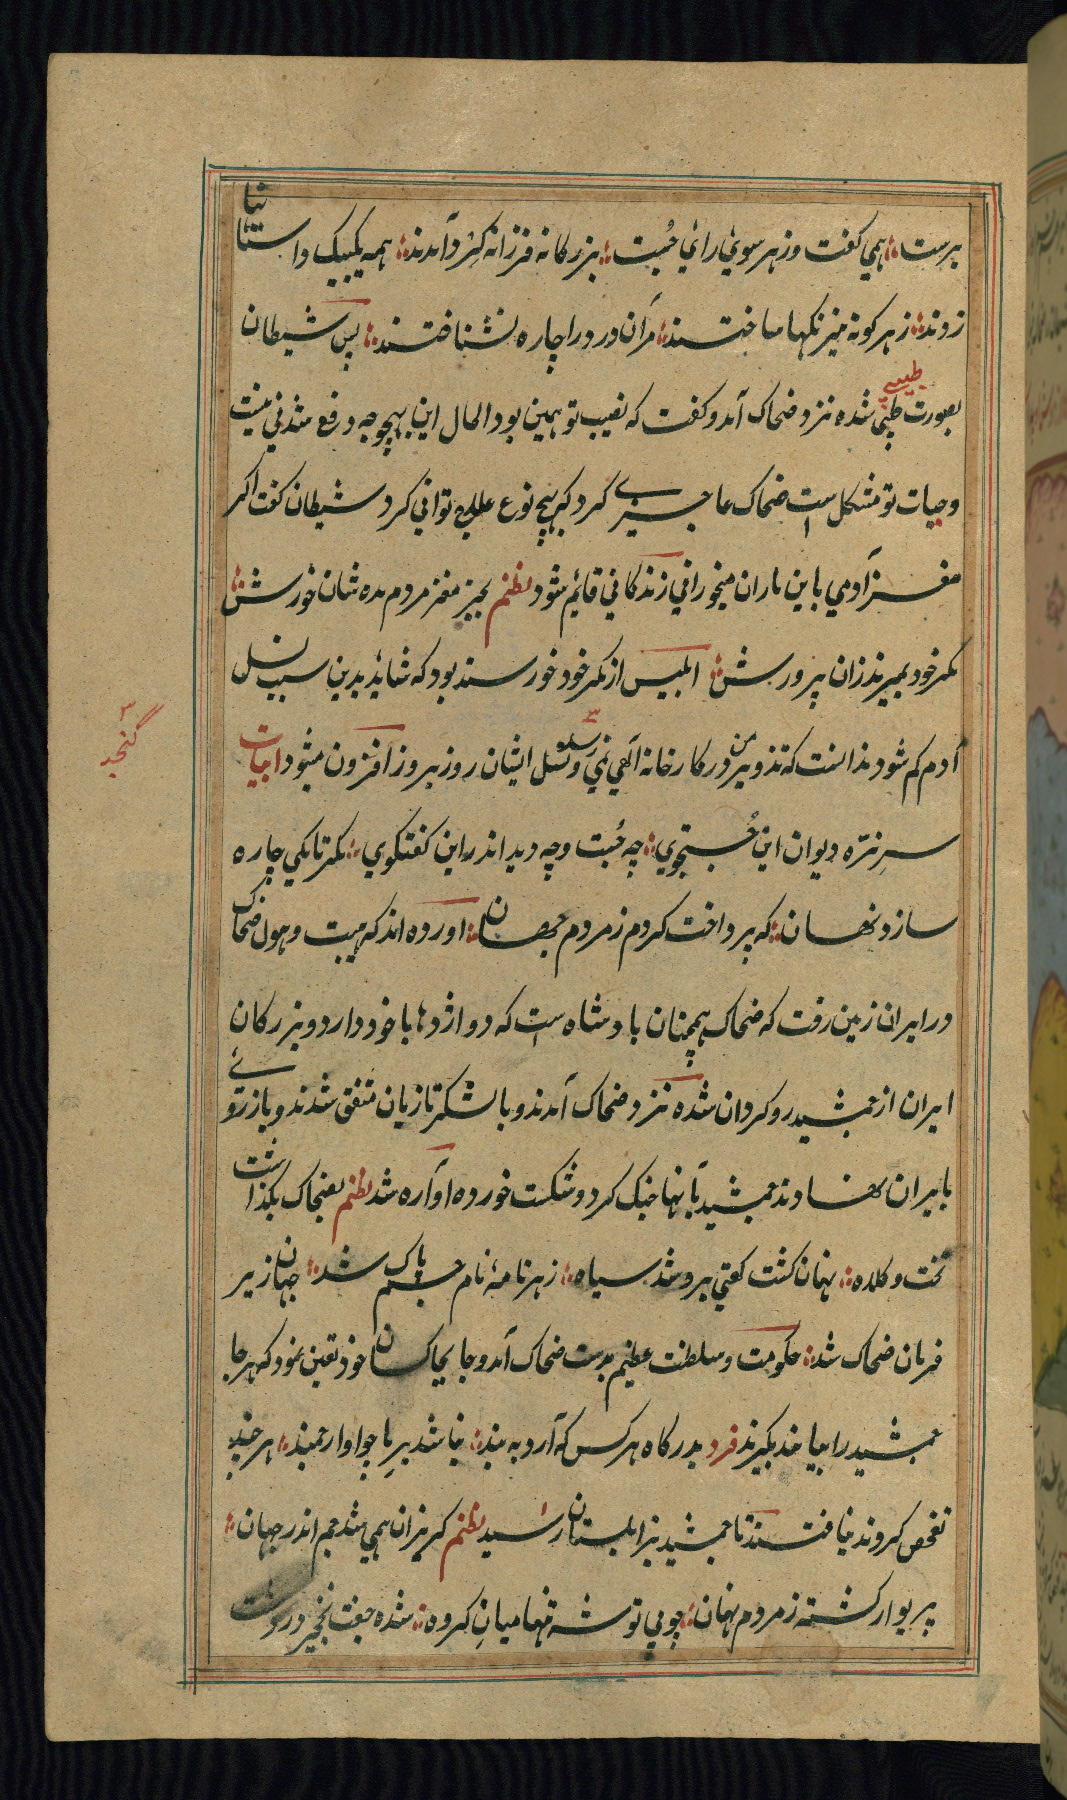 برست ؛ همي كفت و زهر سوي راي جُست ؛ بزركانه فرزانه كِرد آمدند ؛ همه يكبيك داستانها
زدند ؛ زهر كونه نيرنكها ساختند ؛ مرآن درد را چاره نشناختند ؛ پس شيطان
بصورت طبيبي شده نزد ضحاك آمد و كفت كه نصيب تو همين بود الحال اين بهيچ وجه دفع شدني نيست
و حيات تو مشكل است ضحاك عاجزي كرد كه هيچ نوع علاج تواني كرد شيطان كفت اكر
مغز آدمي باين ماران ميخوراني زندكاني قايم شود نظم بجز مغز مردم مده شان خورش ؛
مكر خود بميرند زان پرورش ؛ ابليس از مكر خود خورسند بود كه شايد بدين سبب نسل
آدم كم شود ندانست كه تزوير من در كارخانه آلهي نمي رسد و نسل ايشان روز بروز افزون ميشود ابيات
۳ گنجد
سرِ نرّه ديوان اين جُستجوي ؛ چه جُست و چه ديد اندراين كفتكوي ؛ مكر تا يكي چاره
سازد نهان ؛ كه پرداخت كردم ز مردم جهان ؛ آورده اند كه هيبت و هول ضحاك
در ايران زمين رفت كه ضحاك همچنان بادشاه است كه دو اژدها با خود دارد و بزركان
ايران از جمشيد روكردان شده نزد ضحاك آمدند و با لشكر تازيان متفق شدند و باز روي
بايران نهادند جمشيد بآنها جنك كرد و شكست خورده آواره شد نظم بضحاك بكذاشت
تخت و كلاه ؛ نهان كشت كيتي برو شد سياه ؛ ز هر نامهٔ نام جم پاك شد ؛ جهان زير
فرمان ضحاك شد ؛ حكومت و سلطنت عظيم بدست ضحاك آمد و جا بجا كسان خود تعين نمود كه هر جا
جمشيد را بيابند بكيرند فرد بدركاه هر كس كه آرد به بند ؛ نباشد برِ ما چو او ارجمند ؛ هر چند
تفحص كردند نيافتند تا جمشيد بزابلستان رسيد نظم كريزان همي شد جم اندر جهان ؛
پريوار كشته ز مردم نهان ؛ چو بي توشه تنها ميانِ كروه ؛ شده جفت نخچير در